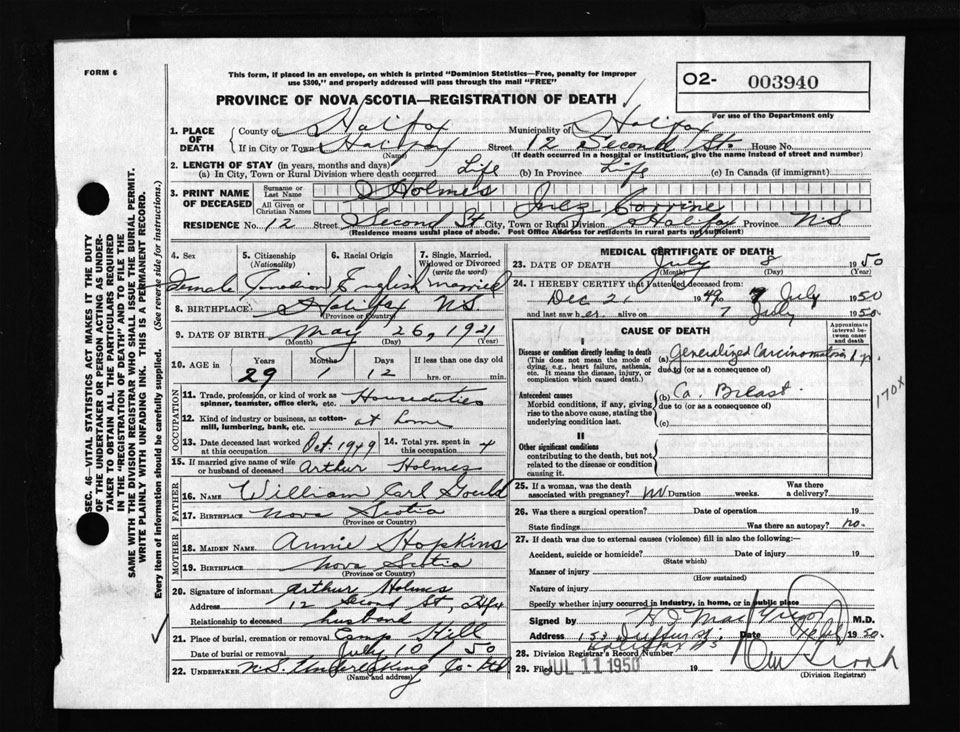 FORM 6
This form, if placed in an envelope, on which is printed "Dominion Statistics—Free, penalty for improper
use $300," and properly addressed will pass through the mail "FREE"
O2- 003940
For use of the Department only
PROVINCE OF NOVA SCOTIA—REGISTRATION OF DEATH
1. PLACE OF DEATH
County of Halifax Municipality of Halifax
If in City or Town Halifax Street 12 Second St. House No.
(Name) (If death occurred in a hospital or institution, give the name instead of street and number)
2. LENGTH OF STAY (in years, months and days)
(a) In City, Town or Rural Division where death occurred Life (b) In Province Life (c) In Canada (if immigrant)
3. PRINT NAME OF DECEASED
Surname or Last Name Holmes
All Given or Christian Names Inez Corrine
RESIDENCE No. 12 Street Second St City, Town or Rural Division Halifax Province N.S.
(Residence means usual place of abode. Post Office Address for residents in rural parts not sufficient)
4. Sex 5. Citizenship (Nationality) 6. Racial Origin 7. Single, Married, Widowed or Divorced (write the word)
Female Canadian English married
8. BIRTHPLACE Halifax N.S.
(Province or Country)
9. DATE OF BIRTH May 26, 1921
(Month) (Day) (Year)
10. AGE Years Months Days If less than one day old
29 1 12 hrs. or min.
OCCUPATION
11. Trade, profession, or kind of work as spinner, teamster, office clerk, etc. Houseduties
12. Kind of industry or business, as cotton-mill, lumbering, bank, etc. at home
13. Date deceased last worked at this occupation Oct. 1949 14. Total yrs. spent in this occupation 4
15. If married give name of wife or husband of deceased Arthur Holmes
FATHER
16. NAME William Carl Gould
17. BIRTHPLACE Nova Scotia
(Province or Country)
MOTHER
18. MAIDEN NAME Annie Hopkins
19. BIRTHPLACE Nova Scotia
(Province or Country)
20. Signature of informant Arthur Holmes
Address 12 Second St, Hfx
Relationship to deceased husband
21. Place of burial, cremation or removal Camp Hill
Date of burial or removal July 10/50
22. UNDERTAKER N.S. Undertaking Co. Ltd
(Name and address)
MEDICAL CERTIFICATE OF DEATH
23. DATE OF DEATH July 8 1950
(Month) (Day) (Year)
24. I HEREBY CERTIFY that I attended deceased from:
Dec 21 1949 7 July 1950
and last saw her alive on 7 July 1950.
CAUSE OF DEATH
Approximate interval between onset and death
I
Disease or condition directly leading to death
(This does not mean the mode of dying, e.g., heart failure, asthenia, etc. It means the disease, injury, or complication which caused death.)
(a) Generalized Carcinomatosis
due to (or as a consequence of)
Antecedent causes
Morbid conditions, if any, giving rise to the above cause, stating the underlying condition last.
(b) Ca. Breast.
due to (or as a consequence of)
(c)
170X
II
Other significant conditions
contributing to the death, but not related to the disease or condition causing it.
25. If a woman, was the death associated with pregnancy? no Duration weeks. Was there a delivery?
26. Was there a surgical operation? Date of operation 19
State findings Was there an autopsy? no.
27. If death was due to external causes (violence) fill in also the following:—
Accident, suicide or homicide? Date of injury 19
(State which)
Manner of injury
(How sustained)
Nature of injury
Specify whether injury occurred in industry, in home, or in public place
Signed by M.D.
Address Date 1950.
Halifax NS
28. Division Registrar's Record Number
29. Filed JUL 11 1950 19
(Division Registrar)
SEC. 46—VITAL STATISTICS ACT MAKES IT THE DUTY
OF THE UNDERTAKER OR PERSON ACTING AS UNDER-
TAKER TO OBTAIN ALL THE PARTICULARS REQUIRED
IN THE "REGISTRATION OF DEATH" AND TO FILE THE
SAME WITH THE DIVISION REGISTRAR WHO SHALL ISSUE THE BURIAL PERMIT.
WRITE PLAINLY WITH UNFADING INK. THIS IS A PERMANENT RECORD.
Every item of information should be carefully supplied. (See reverse side for instructions.)